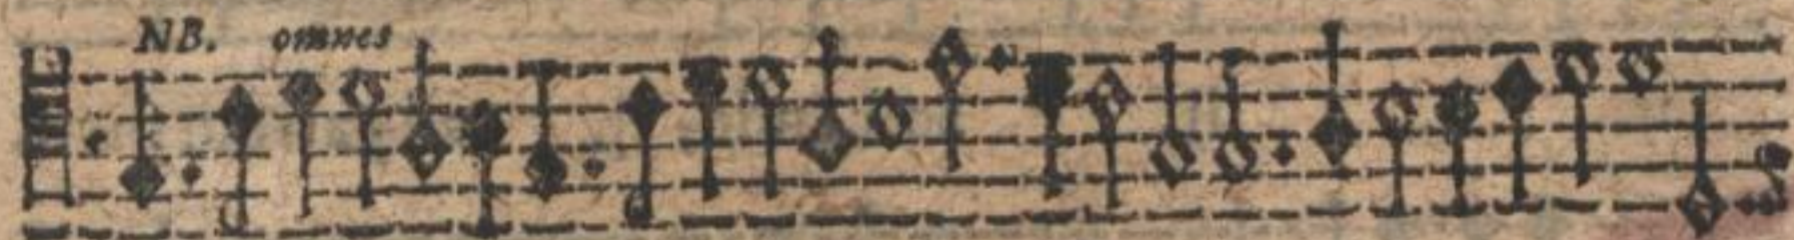 NB. omnes